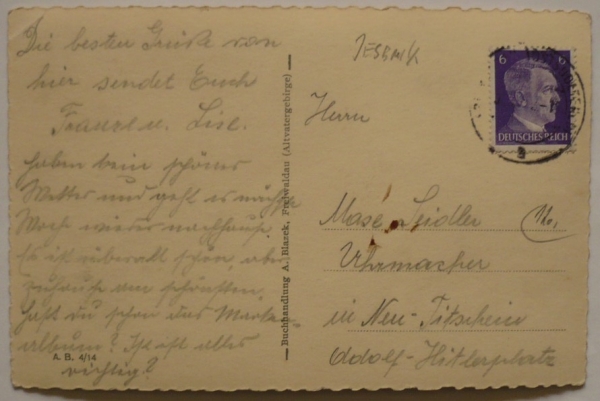 Die besten Grüße von
hier sendet Euch
Franzl u. Lisl.
haben kein schönes
Wetter und geht es nächste
Woche wieder nachhause.
Es ist überall schön, aber
zuhause am schönsten.
Hast du schon das Marken-
album? Ist alles
richtig?
A. B. 4/14
Buchhandlung A. Blasek, Freiwaldau (Altvatergebirge)
JESENIK
6
DEUTSCHES REICH
Herrn
Seidler
Uhrmacher
in Neu-Titschein
Adolf-Hitlerplatz